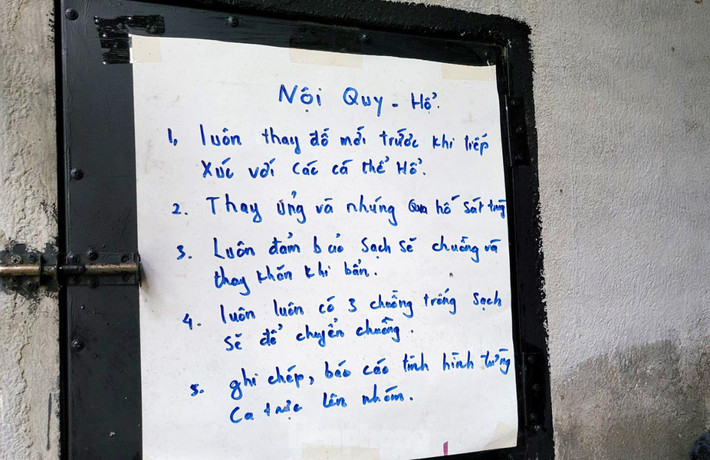 Nội Quy - Hổ.
1, luôn thay đồ mới trước khi tiếp
xúc với các cá thể Hổ.
2. Thay ủng và nhúng qua hố sát trùng
3. Luôn đảm bảo sạch sẽ chuồng và
thay khăn khi bẩn.
4. luôn luôn có 3 chuồng trống sạch
sẽ để chuyển chuồng.
5. ghi chép, báo cáo tình hình từng
Ca trực lên nhóm.